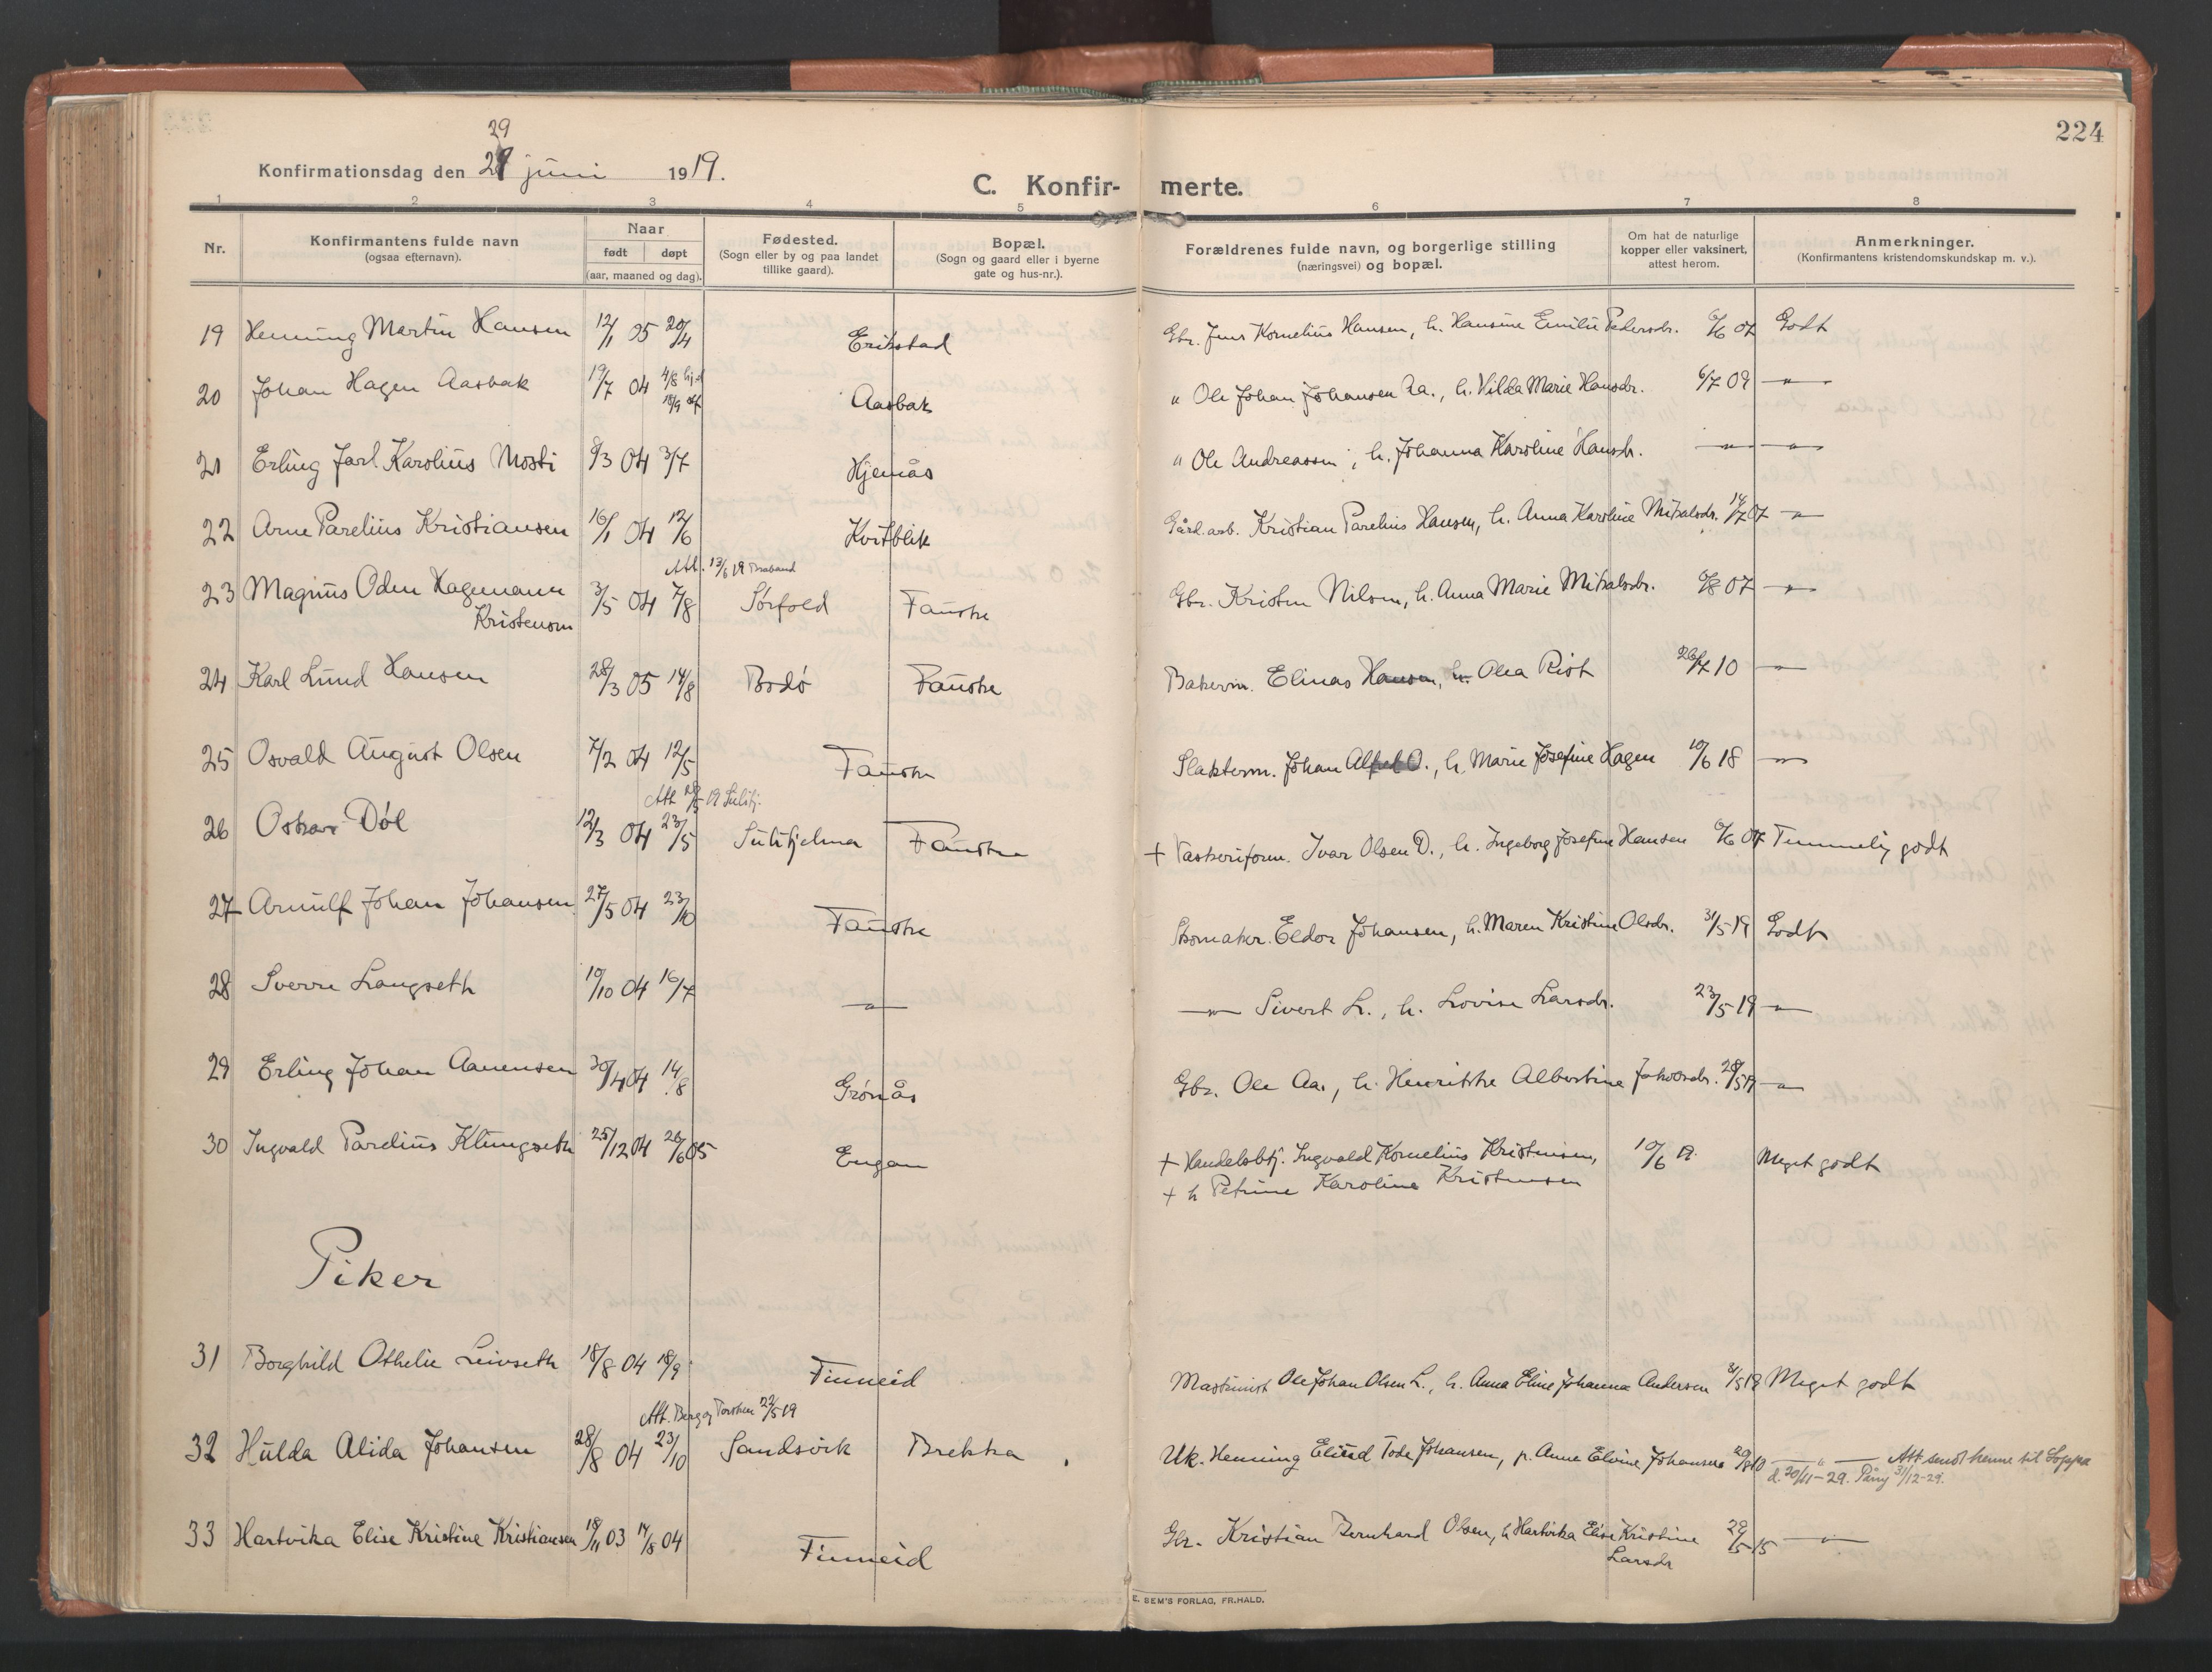 224
29
Konfirmationsdag den 29 juni 1919.
C. Konfir- merte.
1 2 3 4 5 6 7 8
Nr.
Konfirmantens fulde navn
(ogsaa efternavn).
Naar
født døpt
(aar, maaned og dag).
Fødested.
(Sogn eller by og paa landet
tillike gaard).
Bopæl.
(Sogn og gaard eller i byerne
gate og hus-nr.).
Forældrenes fulde navn, og borgerlige stilling
(næringsvei) og bopæl.
Om hat de naturlige
kopper eller vaksinert,
attest herom.
Anmerkninger.
(Konfirmantens kristendomskundskap m. v.).
19 Henning Martin Hansen 12/1 05 20/4 Erikstad Gbr. Jens Kornelius Hansen, h. Hansine Emilie Pedersdr. 6/6 07 Godt
20 Johan Hagen Aasbak 19/7 04 4/8 hj.d 18/9 Aasbak " Ole Johan Johansen Aa., h. Hilda Marie Hansdr. 6/7 09 — " —
21 Erling Jarl Karolius Mosti 8/3 04 3/7 Hjemås " Ole Andreassen, h. Johanna Karoline Hansdr. — " — — " —
22 Arne Parelius Kristiansen 16/1 04 12/6 Kvitblik Gård.arb. Kristian Parelius Hansen, h. Anna Karoline Mikalsdr. 14/7 07 — " —
Att. 13/6 19
23 Magnus Oden Hagemann 3/5 04 7/8 Sørfold Fauske Gbr. Kristen Nilsen, h. Anna Marie Mikalsdr. 6/8 07 — " —
Kristensen
24 Karl Lund Hansen 28/3 05 14/8 Bodø Fauske Bakerm. Elinas Hansen, h. Olea Rist 26/7 10 — " —
25 Osvald August Olsen 7/2 04 12/5 Fauske Slakterm. Johan Alfred O., h. Marie Josefine Hagen 10/6 18 — " —
Att 19 Sulitj.
26 Oskar Døl 12/3 04 23/5 Sulitjelma Fauske + Vaskeriform. Ivar Olsen D., h. Ingeborg Josefine Hansen 6/6 07 Temmelig godt
27 Arnulf Johan Johansen 27/5 04 23/10 Fauske Skomaker Eldor Johansen, h. Maren Kristine Olsdr. 31/5 19 Godt
28 Sverre Langseth 10/10 04 16/7 — " — — " — Sivert L., h. Lovise Larsdr. 23/5 19 — " —
29 Erling Johan Aanensen 30/4 04 14/8 Grønås Gbr. Ole Aa., h. Henrikke Albertine Jakobsdr. 28/5 19 — " —
30 Ingvald Parelius Klungseth 25/12 04 26/6 05 Engan + Handelsbtj. Ingvald Kornelius Kristensen, 10/6 19. Meget godt
+ h Petrine Karoline Kristensen
Piker
31 Borghild Othelie Leivseth 18/8 04 18/9 Finneid Maskinist Ole Johan Olsen L., h. Anna Eline Johanna Andersen 31/5 19 Meget godt
Att. Berg og Torsken 22/5 19
32 Hulda Alida Johansen 28/8 04 23/10 Sandsvik Brekka Uk. Henning Elind Tode Johansen, p. Anna Elvine Johansen 29/8 10 — " — Att sendt henne til Loppa
d. 20/11-29. Påny 31/12-29.
33 Hartvika Elise Kristine Kristiansen 18/11 03 14/8 04 Finneid Gbr. Kristian Bernhard Olsen, h Hartvika Elise Kristine 29/5 15 — " —
Larsdr
E. SEM'S FORLAG, FR.HALD.